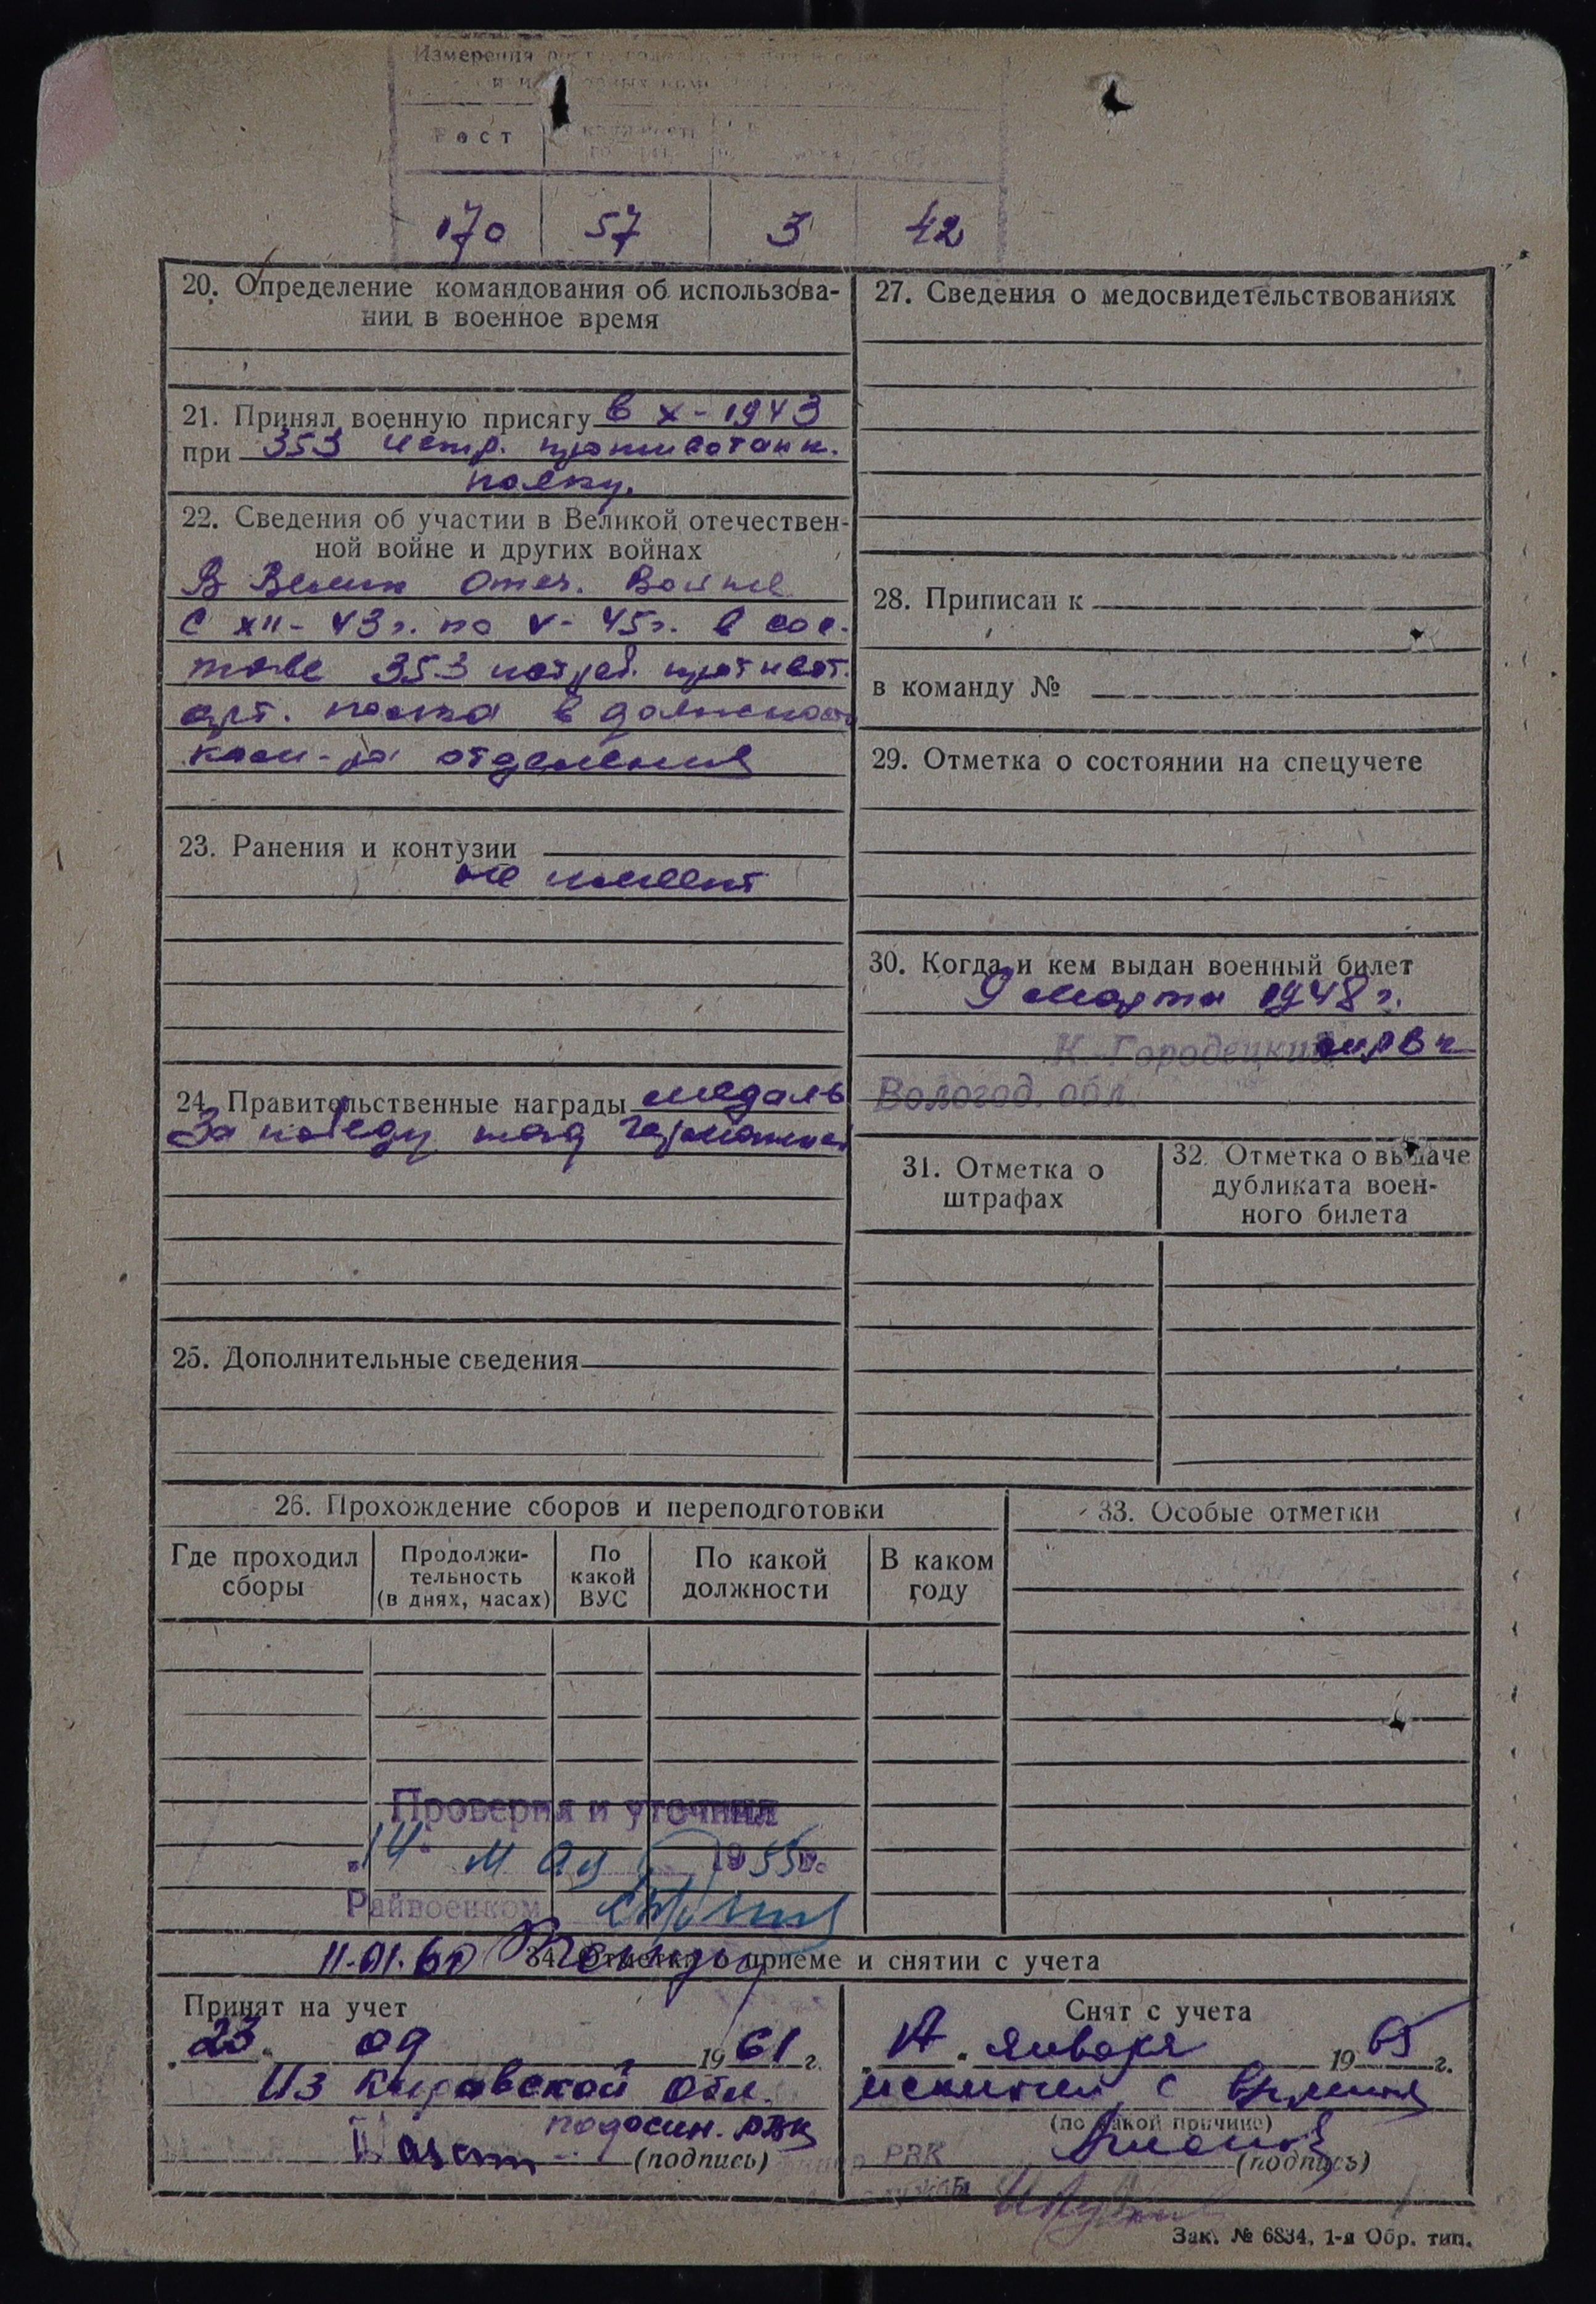 Измерения
Рост
170 57 3 42
20. Определение командования об использова-
нии в военное время
21. Принял военную присягу в X - 1943
при 353 истр. противотанк.
полку.
22. Сведения об участии в Великой отечествен-
ной войне и других войнах
В Велик Отеч. Войне
с XII - 43 г. по V - 45 г. в сос-
таве 353 истреб. противот.
арт. полка в должности
ком-ра отделения
23. Ранения и контузии
не имеет
24. Правительственные награды медаль
За победу над Германией
25. Дополнительные сведения
27. Сведения о медосвидетельствованиях
28. Приписан к
в команду №
29. Отметка о состоянии на спецучете
30. Когда и кем выдан военный билет
9 марта 1948 г.
К-Городецким РВК
Вологод. обл.
31. Отметка о
штрафах
32. Отметка о выдаче
дубликата воен-
ного билета
26. Прохождение сборов и переподготовки
Где проходил
сборы
Продолжи-
тельность
(в днях, часах)
По
какой
ВУС
По какой
должности
В каком
году
33. Особые отметки
Проверил и уточнил
"14" мая 1955 г.
Райвоенком
11.01.60
34. Отметки о приеме и снятии с учета
Принят на учет
"23" 09 1961 г.
Из Кировской обл.
Подосин. РВК
(подпись)
Снят с учета
января 1965 г.
исключен с
(по какой причине)
РВК
(подпись)
Зак. № 6834, 1-я Обр. тип.